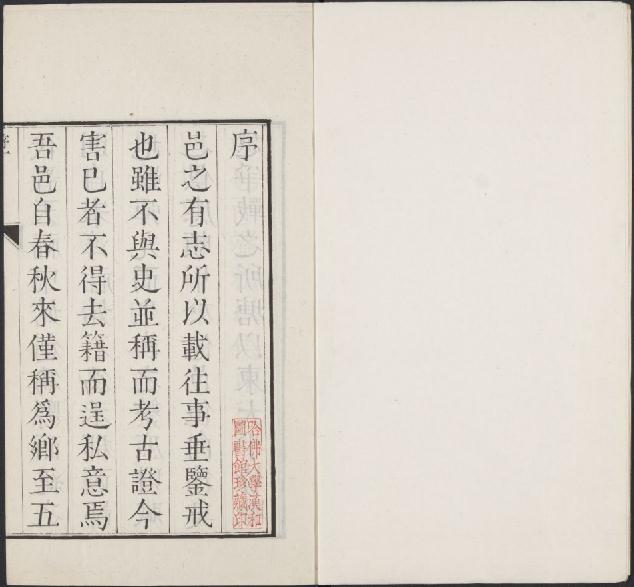 序
邑之有志所以載往事垂鑒戒
也雖不與史並稱而考古證今
害已者不得去籍而逞私意焉
吾邑自春秋來僅稱爲鄉至五
哈佛大學漢和
圖書館珍藏印